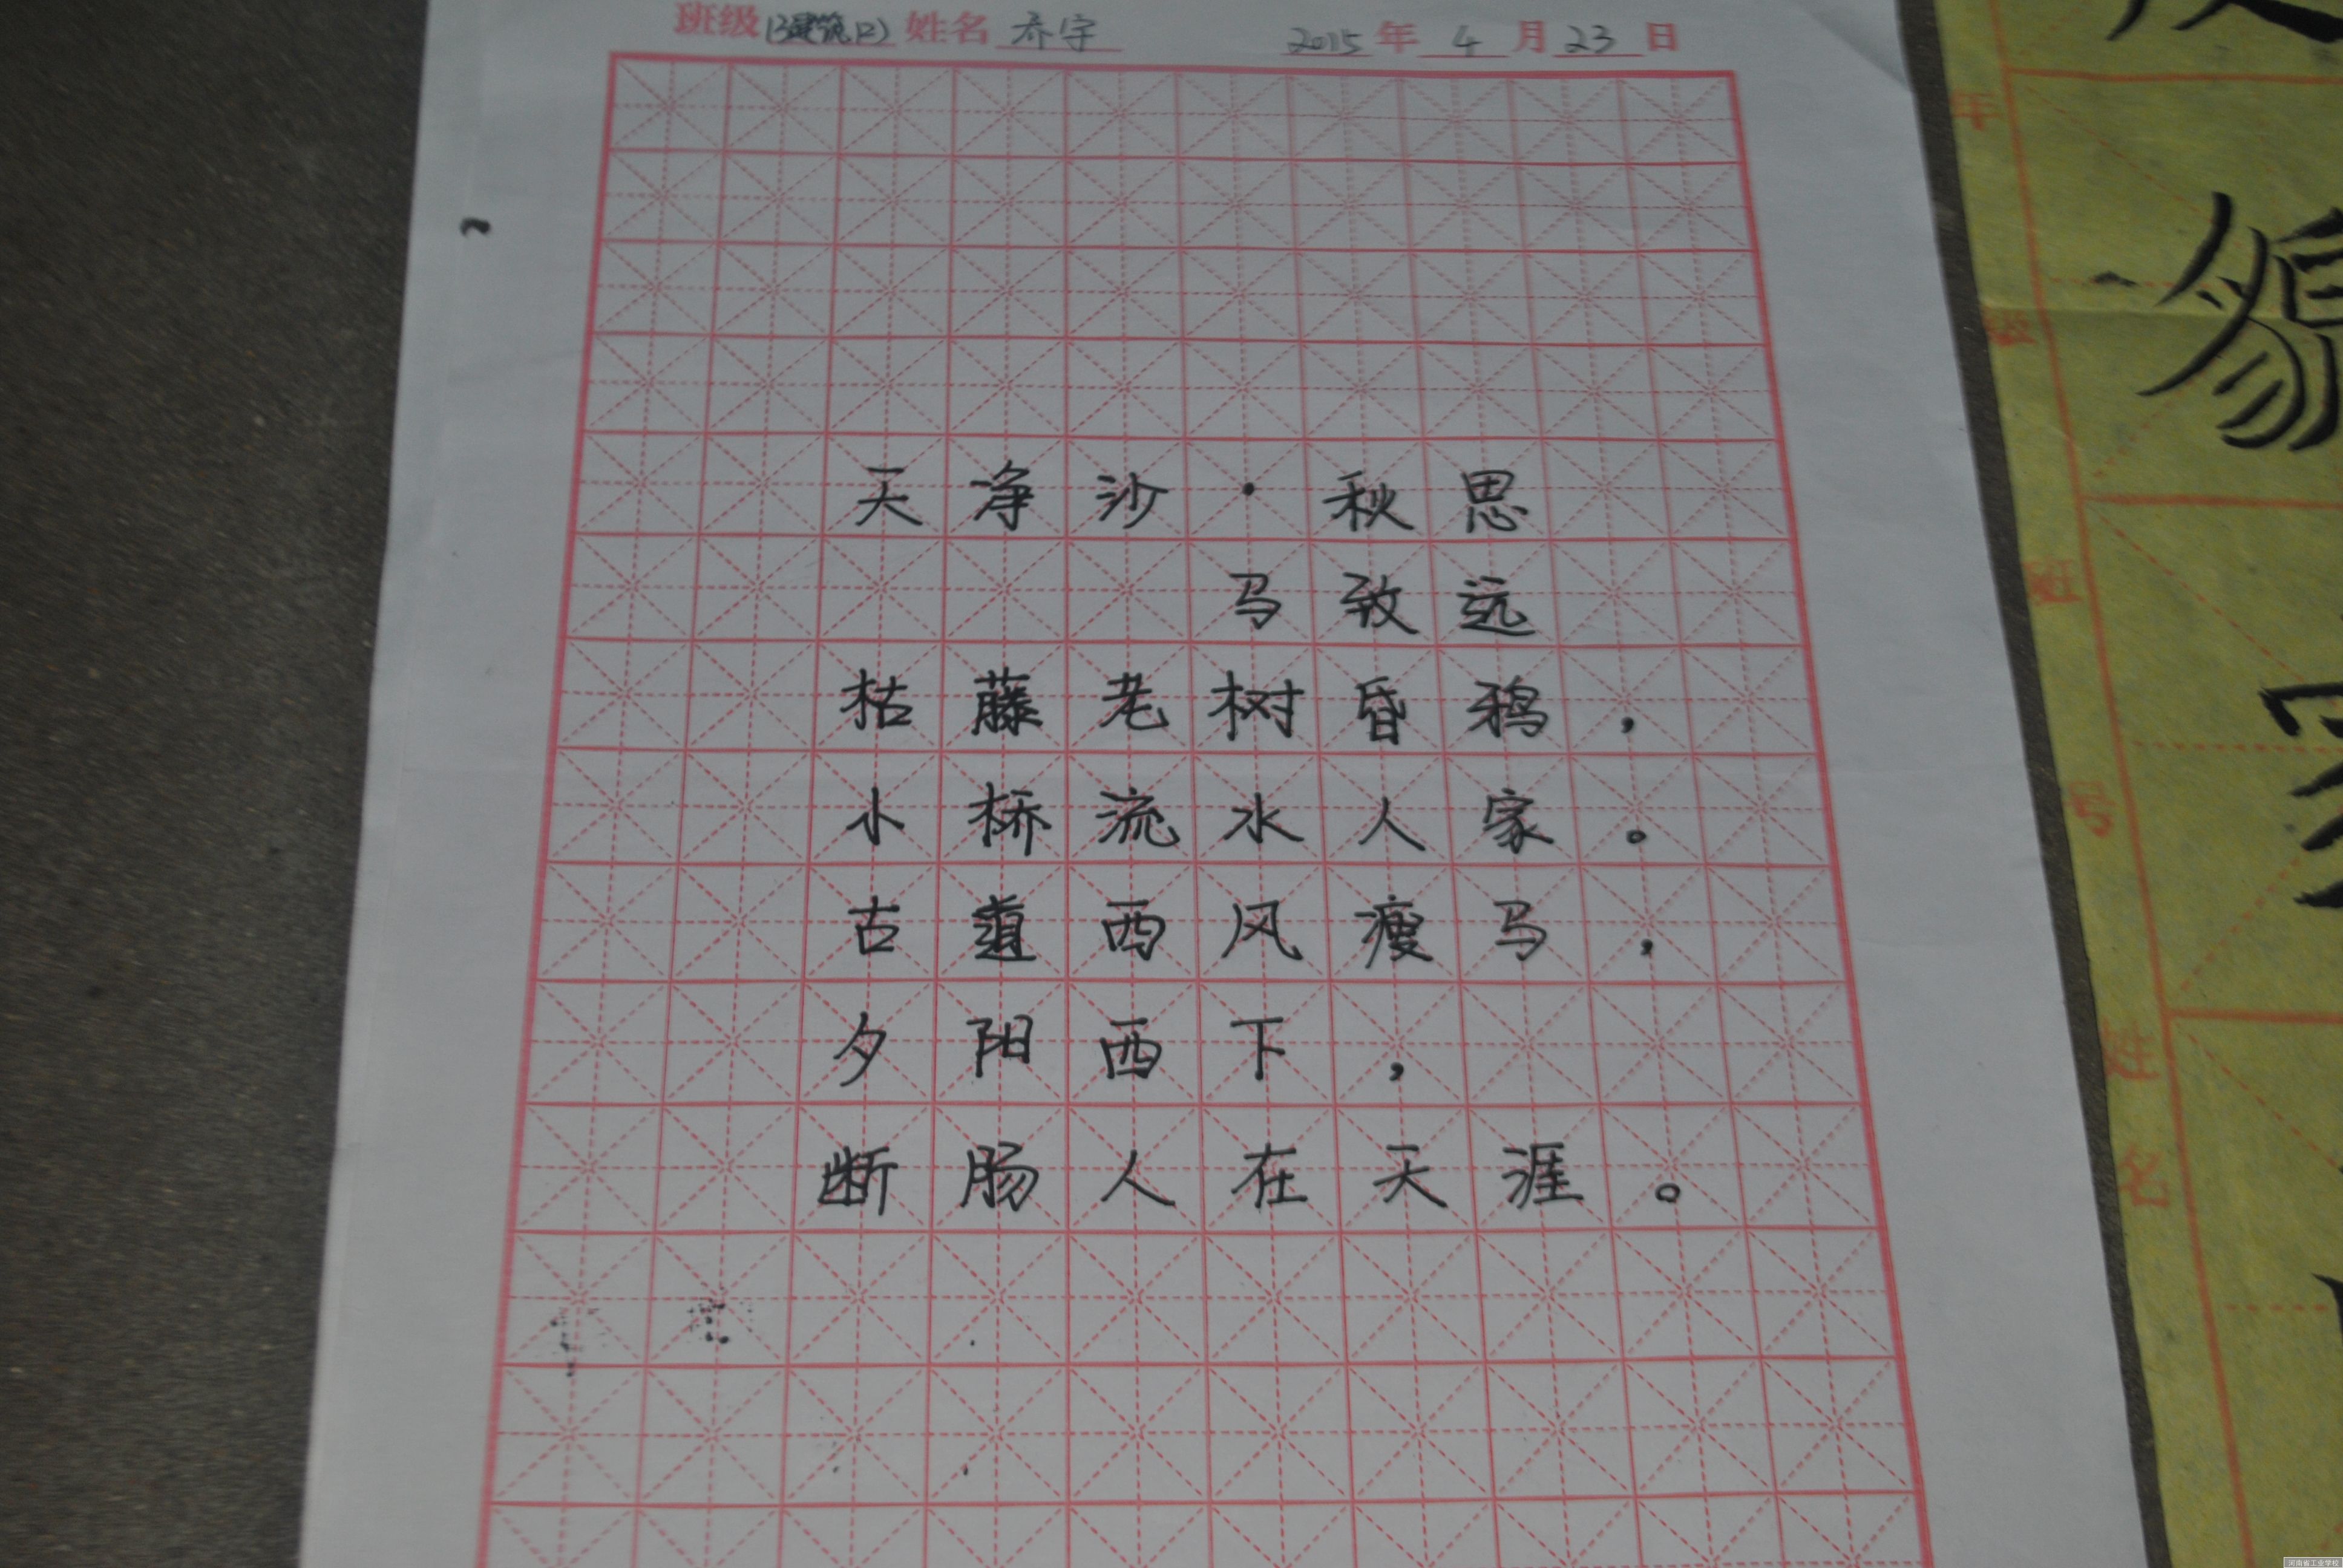 班级 13建筑(2) 姓名 乔宇 2015 年 4 月 23 日
天净沙·秋思
马致远
枯藤老树昏鸦，
小桥流水人家。
古道西风瘦马，
夕阳西下，
断肠人在天涯。
年
级
班
号
姓
名
河南省工业学校